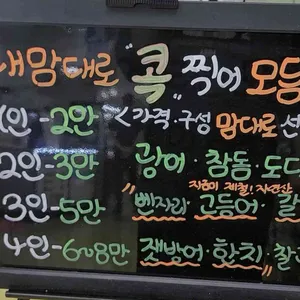 내맘대로 "콕" 찍어 모듬
1인-2만 <가격·구성 맘대로 선
2인-3만 광어·참돔·도다
지금이 제철! 자연산
3인-5만 "벤자리 고등어·갈
4인-6~8만 잿방어·한치